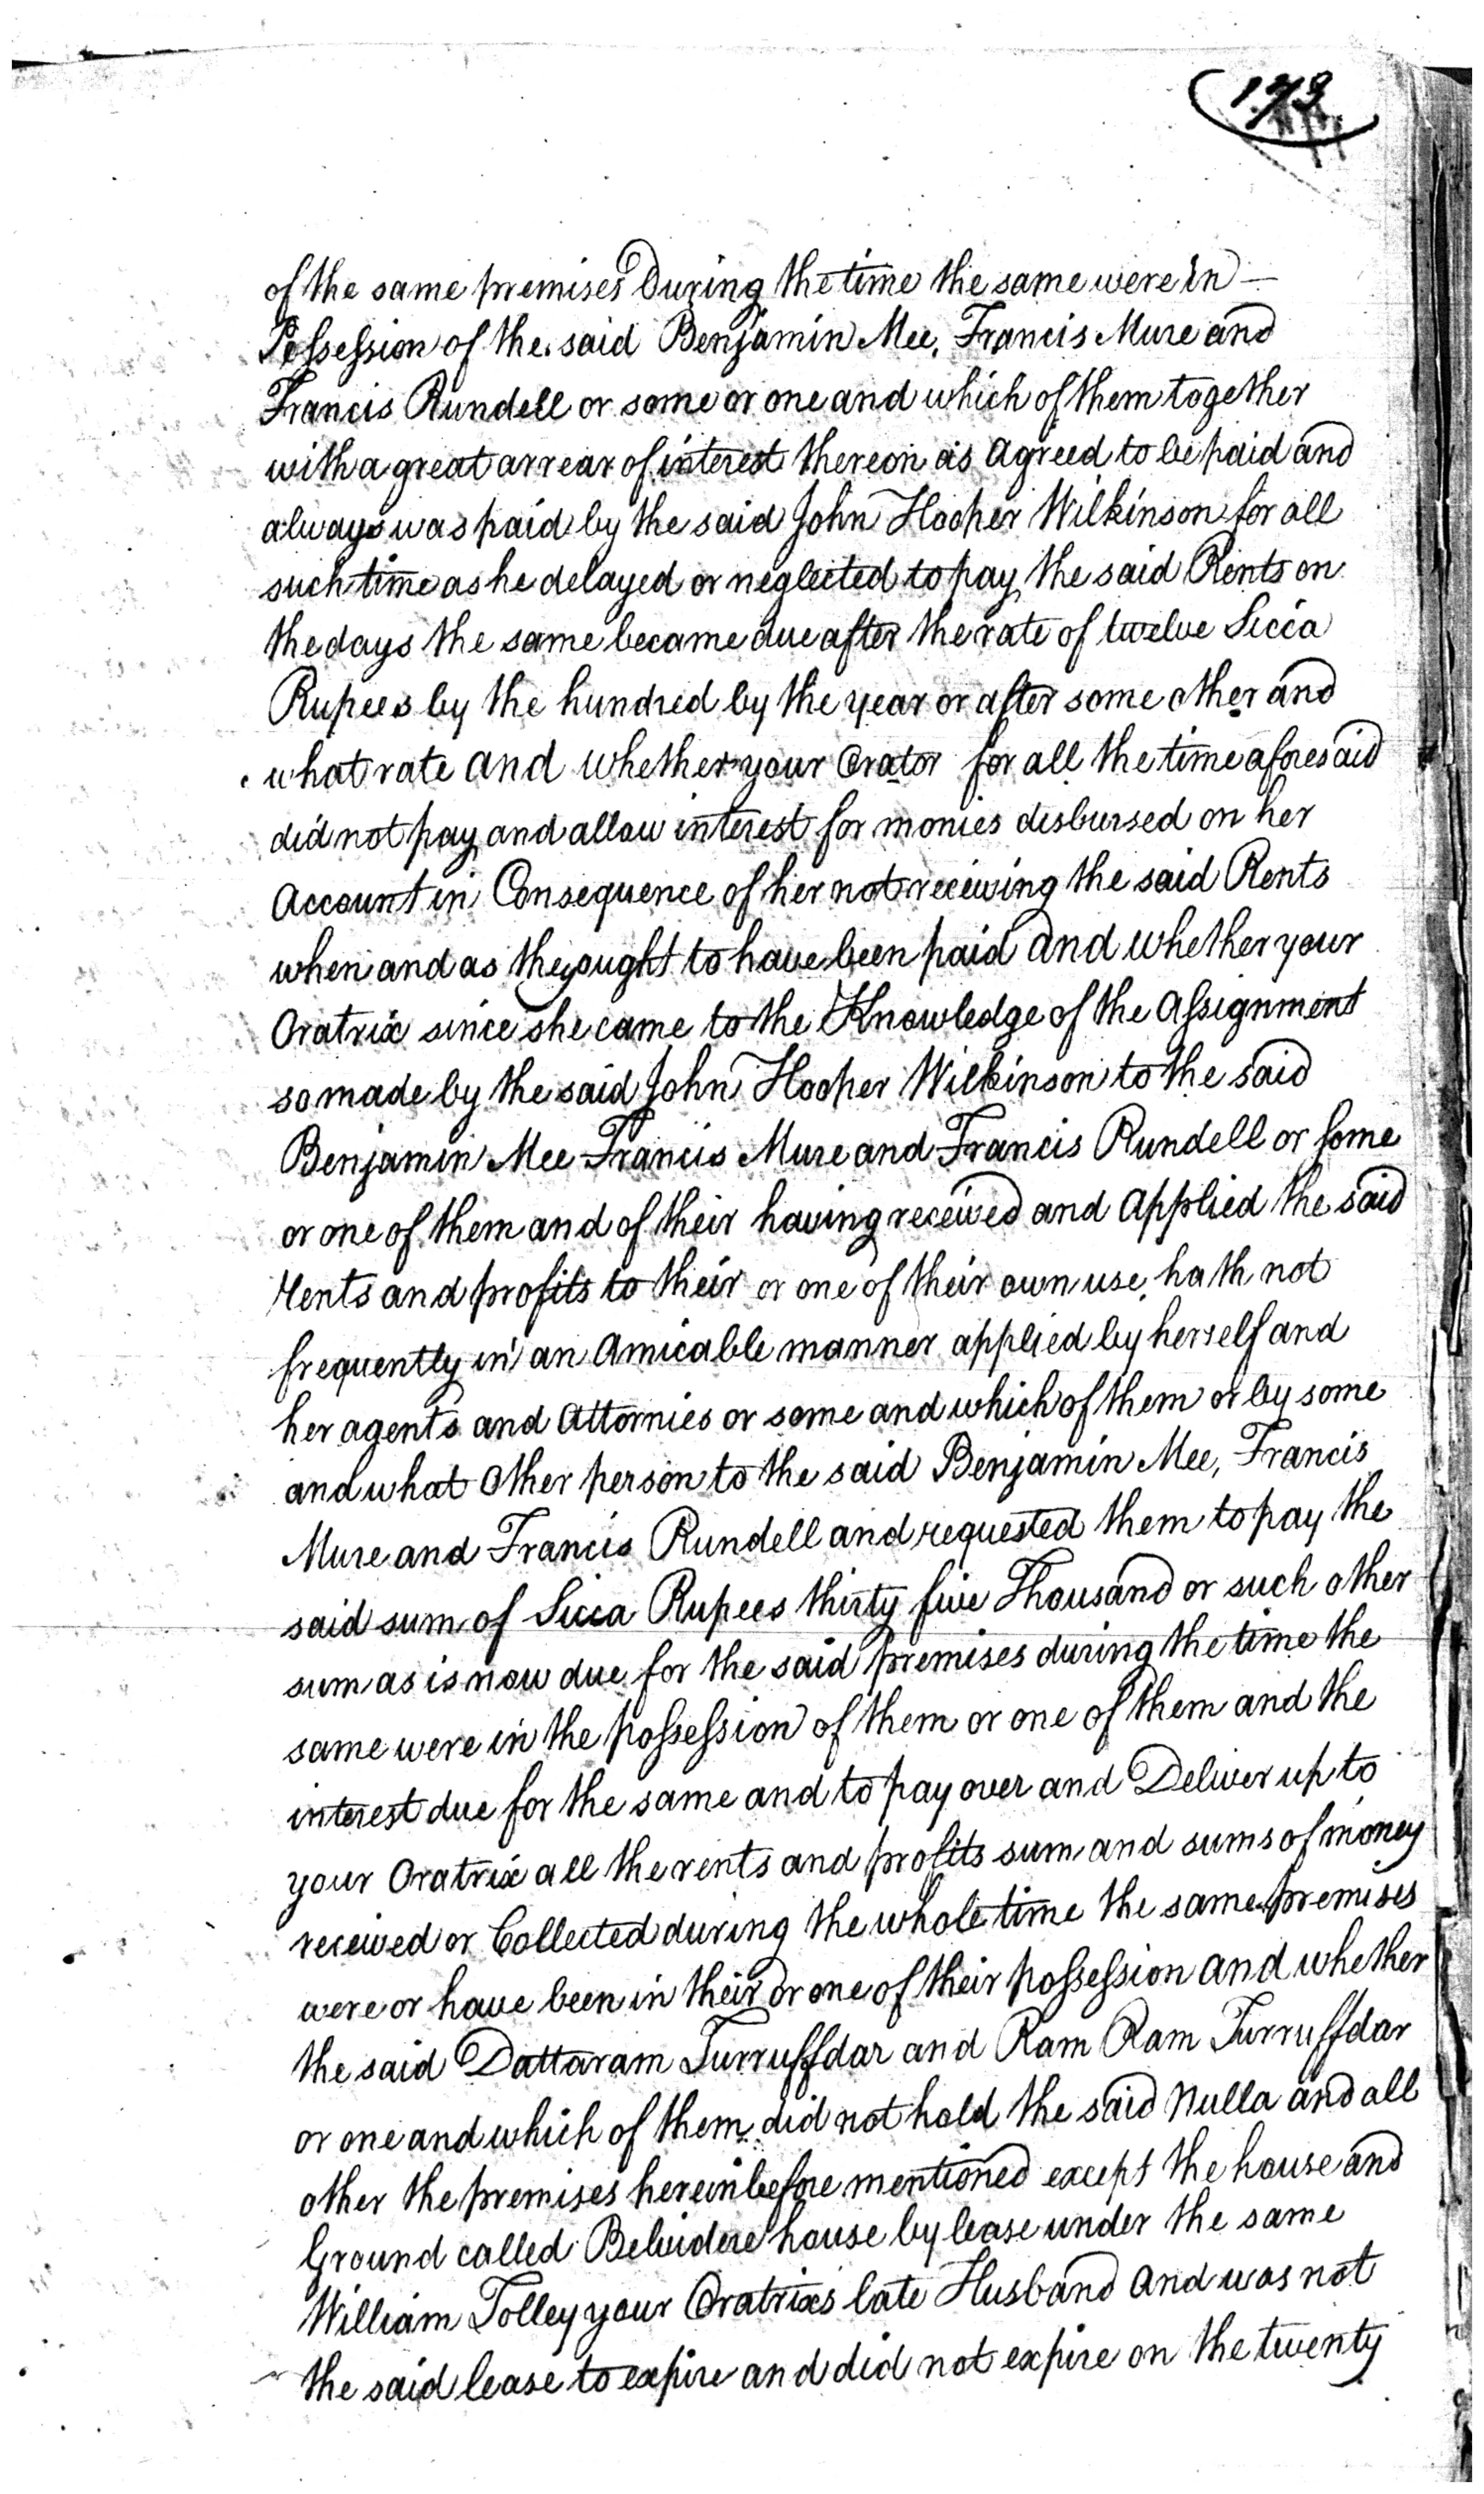 173
of the same premises During the time the same were in
Possession of the said Benjamin Mee, Francis Mure and
Francis Rundell or some or one and which of them together
with a great arrear of interest thereon as agreed to be paid and
always was paid by the said John Hooper Wilkinson for all
such time as he delayed or neglected to pay the said Rents on
the days the same became due after the rate of twelve Sicca
Rupees by the hundred by the year or after some other and
what rate and whether your Orator for all the time aforesaid
did not pay and allow interest for monies disbursed on her
Account in Consequence of her not receiving the said Rents
when and as they ought to have been paid and whether your
Oratrix since she came to the Knowledge of the Assignment
so made by the said John Hooper Wilkinson to the said
Benjamin Mee Francis Mure and Francis Rundell or some
or one of them and of their having received and Applied the said
rents and profits to their or one of their own use hath not
frequently in an Amicable manner applied by herself and
her agents and Attornies or some and which of them or by some
and what other person to the said Benjamin Mee, Francis
Mure and Francis Rundell and requested them to pay the
said sum of Sicca Rupees thirty five Thousand or such other
sum as is now due for the said premises during the time the
same were in the possession of them or one of them and the
interest due for the same and to pay over and Deliver up to
your Oratrix all the rents and profits sum and sums of money
received or Collected during the whole time the same premises
were or have been in their or one of their possession and whether
the said Dattaram Turruffdar and Ram Ram Turruffdar
or one and which of them did not hold the said Nulla and all
other the premises hereinbefore mentioned except the house and
Ground called Belvidere house by lease under the same
William Tolley your Oratrixs late Husband and was not
the said lease to expire and did not expire on the twenty